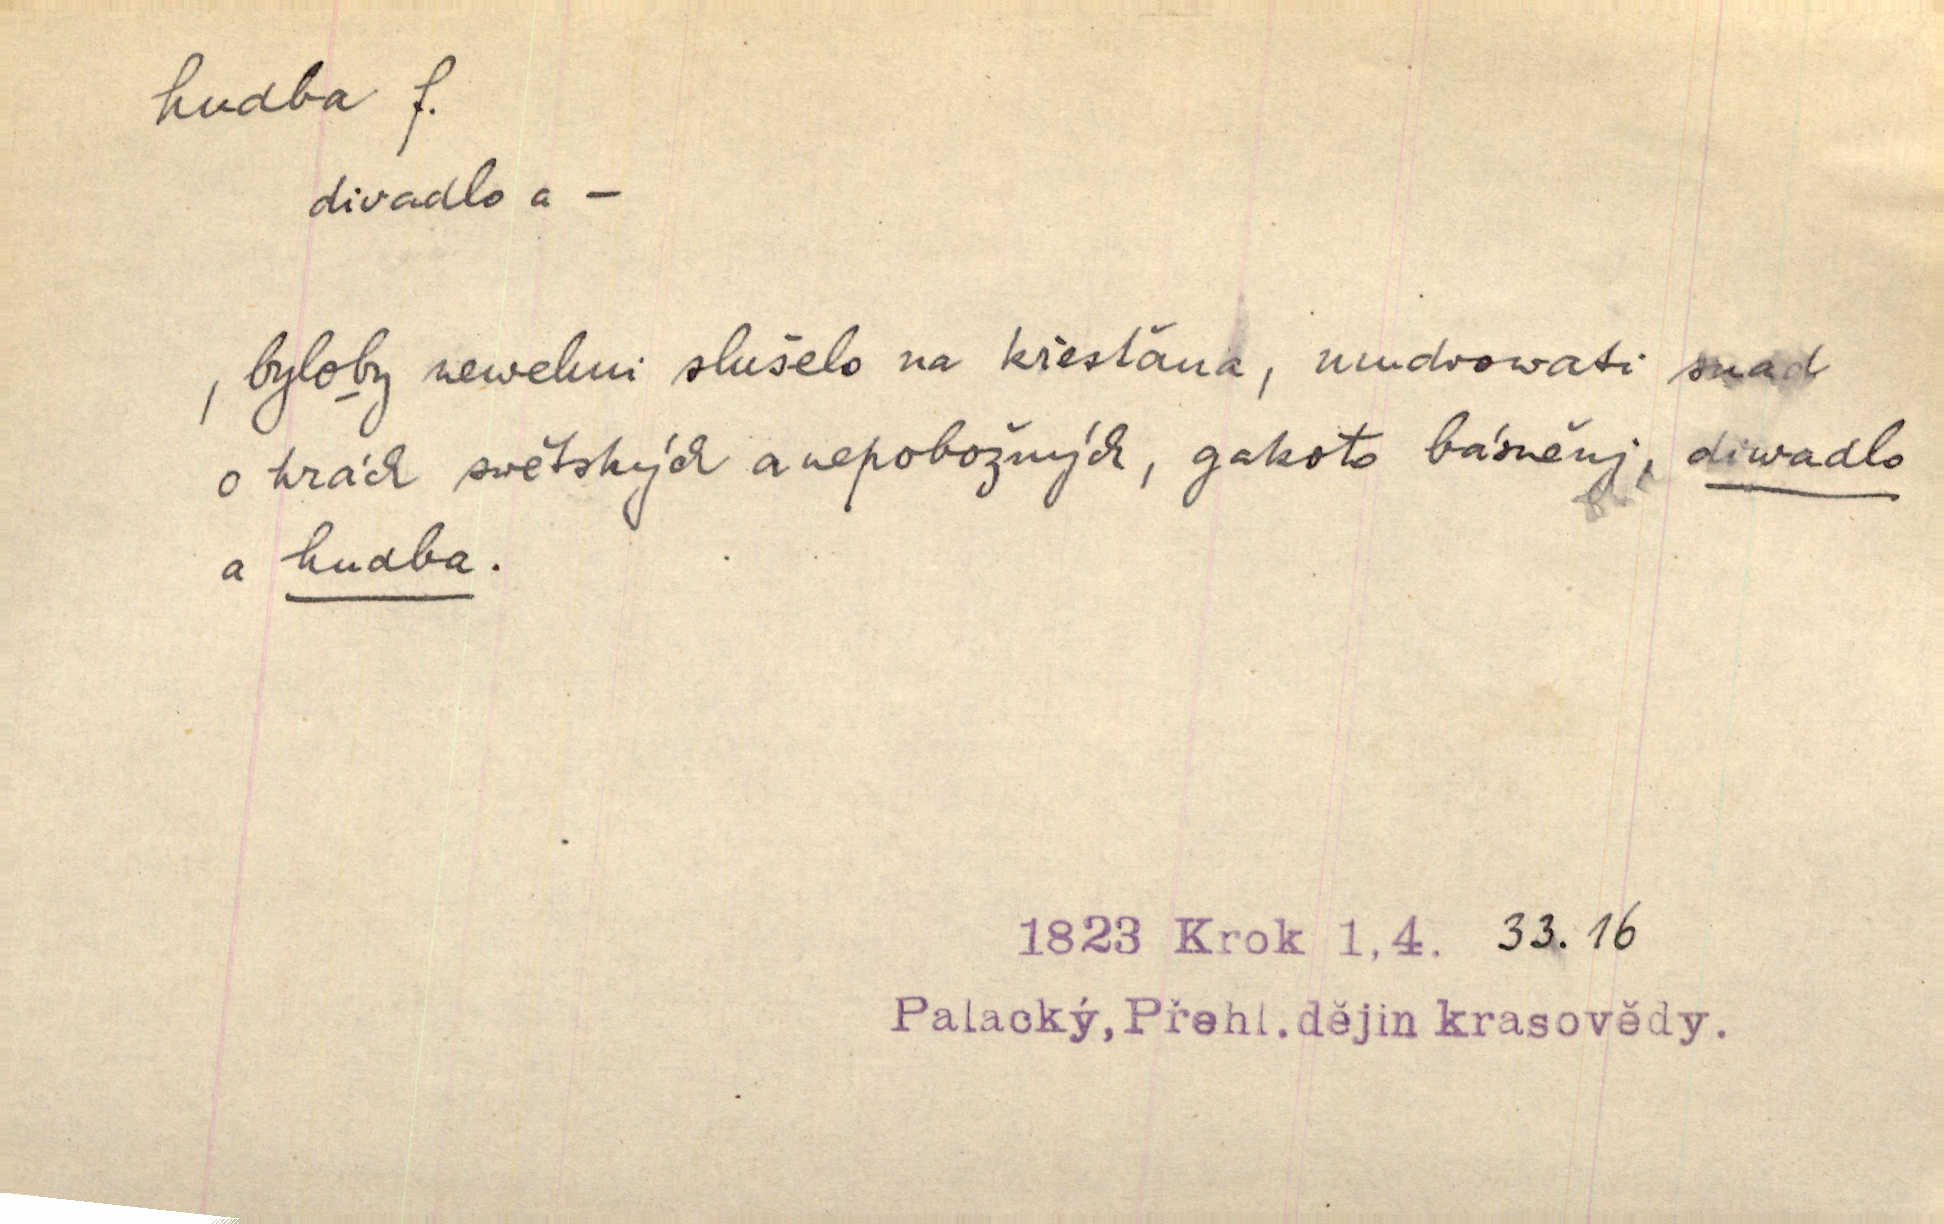 hudba f.
divadlo a –
, byloby newelmi slušelo na křesťána, mudrowati snad
o hrách swětských a nepobožných, gakoto básněnj, diwadlo
a hudba.
1823 Krok 1,4. 33.16
Palacký, Přehl. dějin krasovědy.